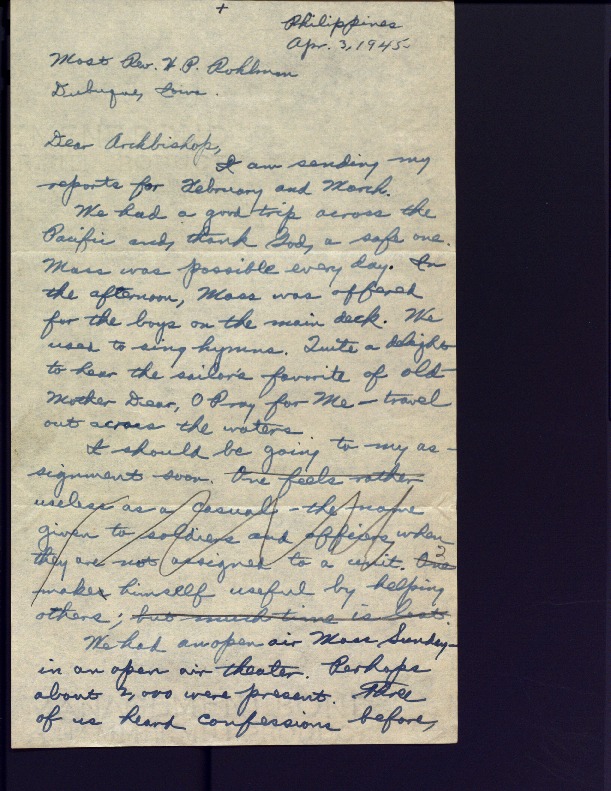 +
Philippines
Apr. 3, 1945
Most Rev. H. P. Rohlman
Dubuque, Iowa.
Dear Archbishop,
I am sending my
reports for February and March.
We had a good trip across the
Pacific and, thank God, a safe one.
Mass was possible every day. In
the afternoon, Mass was offered
for the boys on the main deck. We
used to sing hymns. Quite a delight
to hear the sailor's favorite of old -
Mother Dear, O Pray for Me - travel
out across the waters
I should be going to my as-
signment soon. One feels rather
useless as a casual - the name
given to soldiers and officers when
they are not assigned to a unit. One
makes himself useful by helping
others; but much time is lost.
We had an open air Mass, Sunday -
in an open air theater. Perhaps
about 2,000 were present. Three
of us heard confessions before,